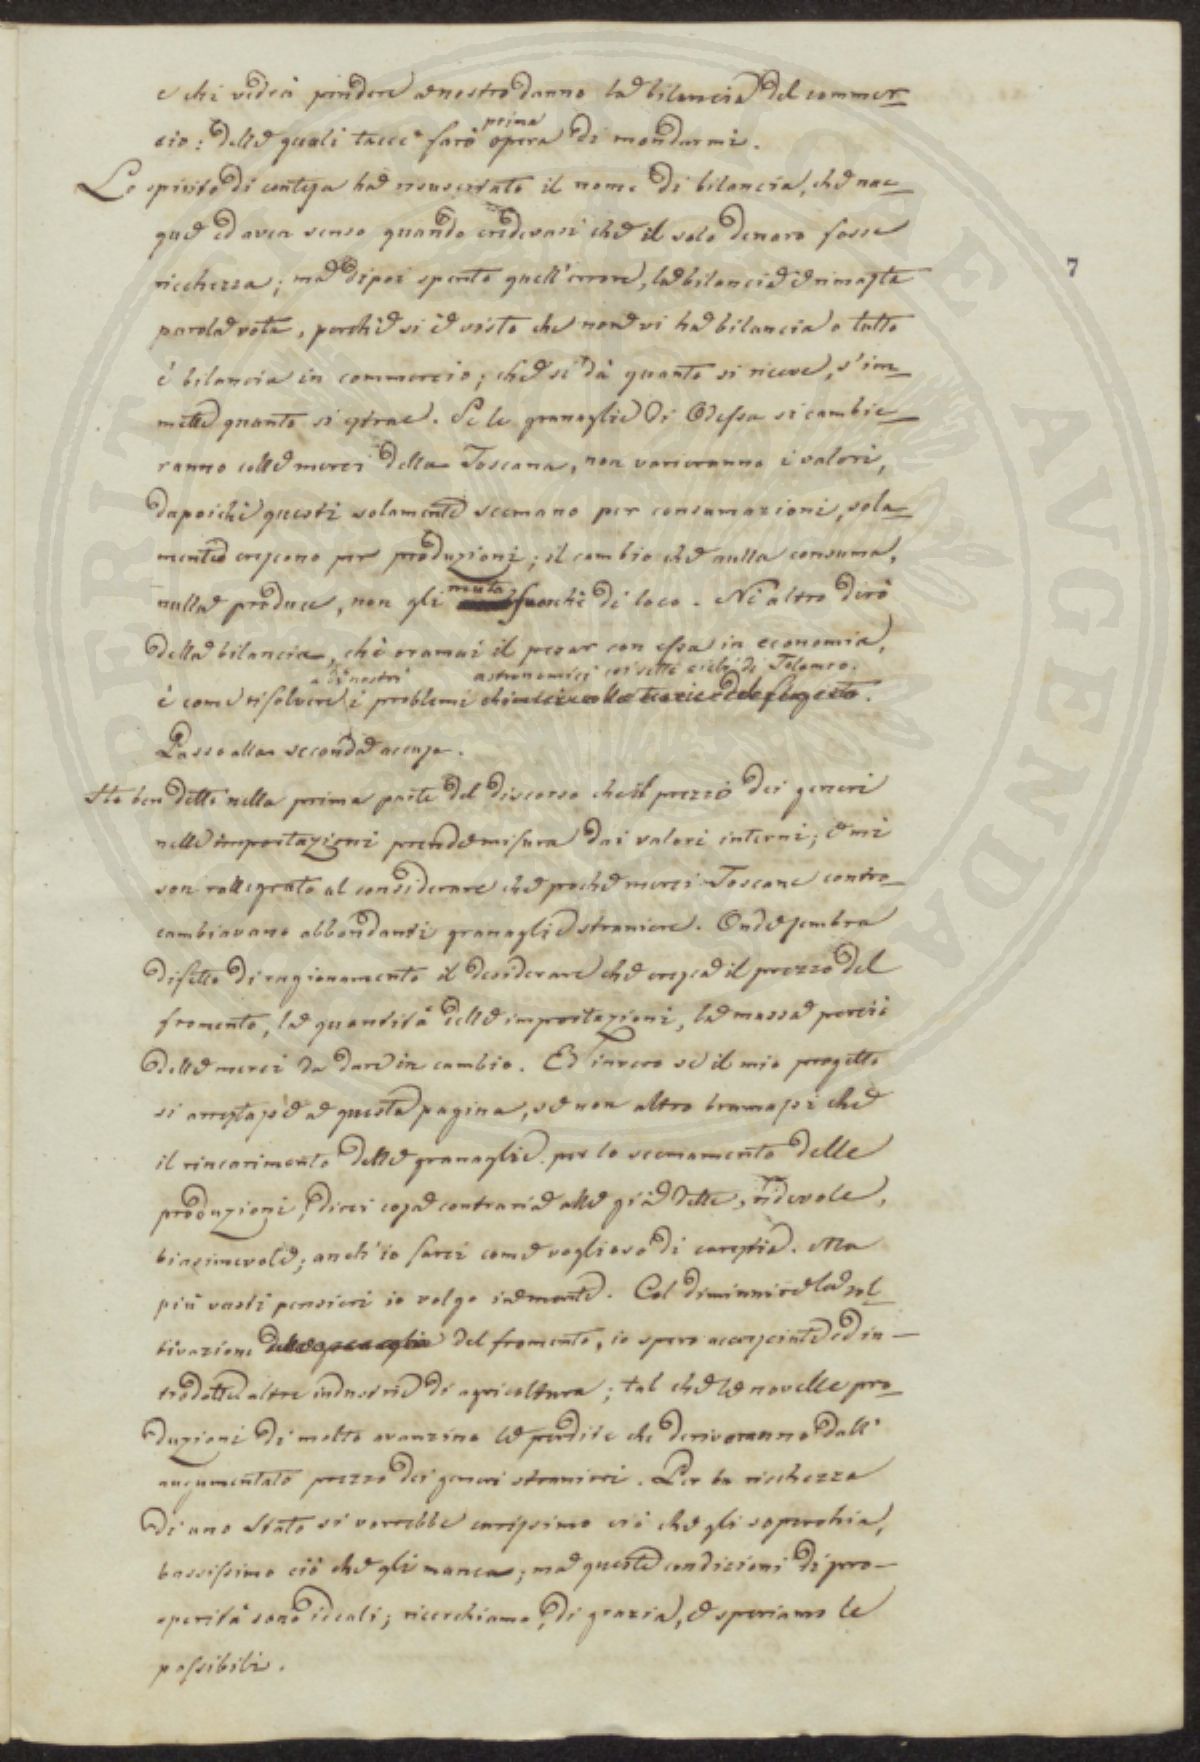 e chi vedrà pendere a nostro danno la bilancia del commer-
cio: delle quali tacce farò prima opera di mondarmi.
Lo spirito di contesa ha risuscitato il nome di bilancia, che nac-
que ed avea senso quando credevasi che il solo denaro fosse
ricchezza; ma dipoi spento quell'errore, la bilancia è rimasta
parola vota, perchè si è visto che non vi ha bilancia o tutto
è bilancia in commercio; che si dà quanto si riceve, s'im-
mette quanto si estrae. Se le granaglie di Odessa si cambie-
ranno colle merci della Toscana, non varieranno i valori,
dapoichè questi solamente scemano per consumazioni, sola-
mente crescono per produzioni; il cambio che nulla consuma,
nulla produce, non gli muta fuorchè di loco. Nè altro dirò
della bilancia, chè oramai il pesar con essa in economia,
è come risolvere a dì nostri i problemi astronomici coi sette cieli di Tolomeo.
chimici colla teorica del flogisto.
Passo alla seconda accusa.
Ho ben detto nella prima parte del discorso che il prezzo dei generi
nelle importazioni prende misura dai valori interni; e mi
son rallegrato al considerare che poche merci Toscane contro-
cambiavano abbondanti granaglie straniere. Onde sembra
difetto di ragionamento il desiderare che cresca il prezzo del
fromento, la quantità delle importazioni, la massa perciò
delle merci da dare in cambio. Ed invero se il mio progetto
si arrestasse a questa pagina, se non altro bramassi che
il rincarimento delle granaglie per lo scemamento delle
produzioni, direi cosa contraria alle già dette, ridevole,
biasimevole; anch'io sarei come voglioso di carestia. Ma
più vasti pensieri io volgo in mente. Col diminuire la col-
tivazione delle granaglie del fromento, io spero accresciute ed in-
trodotte altre industrie di agricoltura; tal che le novelle pro-
duzioni di molto avanzino le perdite che deriveranno dall'
augumentato prezzo dei generi stranieri. Per la ricchezza
di uno Stato si vorrebbe carissimo ciò che gli soperchia,
bassissimo ciò che gli manca; ma queste condizioni di pro-
sperità sono ideali; ricerchiamo, di grazia, e speriamo le
possibili.
7
PERITIA
AVGENDA